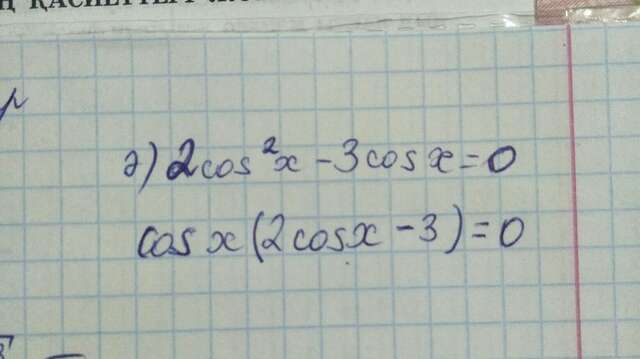 ҚАСИЕТТЕРІ
ә) 2cos²x - 3cosx = 0
cosx(2cosx - 3) = 0